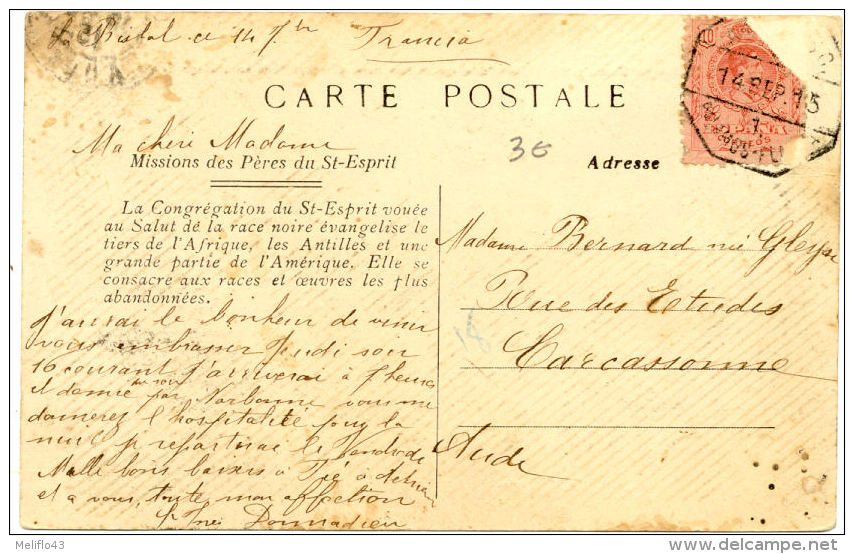 ce 14 7bre Francia
CARTE POSTALE
14 SEP. 15
Ma chère Madame
Missions des Pères du St-Esprit
36
Adresse
La Congrégation du St-Esprit vouée
au Salut de la race noire évangelise le
tiers de l'Afrique, les Antilles et une
grande partie de l'Amérique. Elle se
consacre aux races et œuvres les plus
abandonnées.
J'aurai le bonheur de venir
vous embrasser Jeudi soir
16 courant j'arriverai à 7 heures
et demie du soir par Narbonne vous me
donnerez l'hospitalité pour la
nuit je repartirai le Vendredi
Mille bons baisers à
et a vous, toute mon affection
Donnadieu
Madame Bernard née Gleyse
Rue des Etudes
Carcassonne
Aude
Meliflo43
delcampe.net